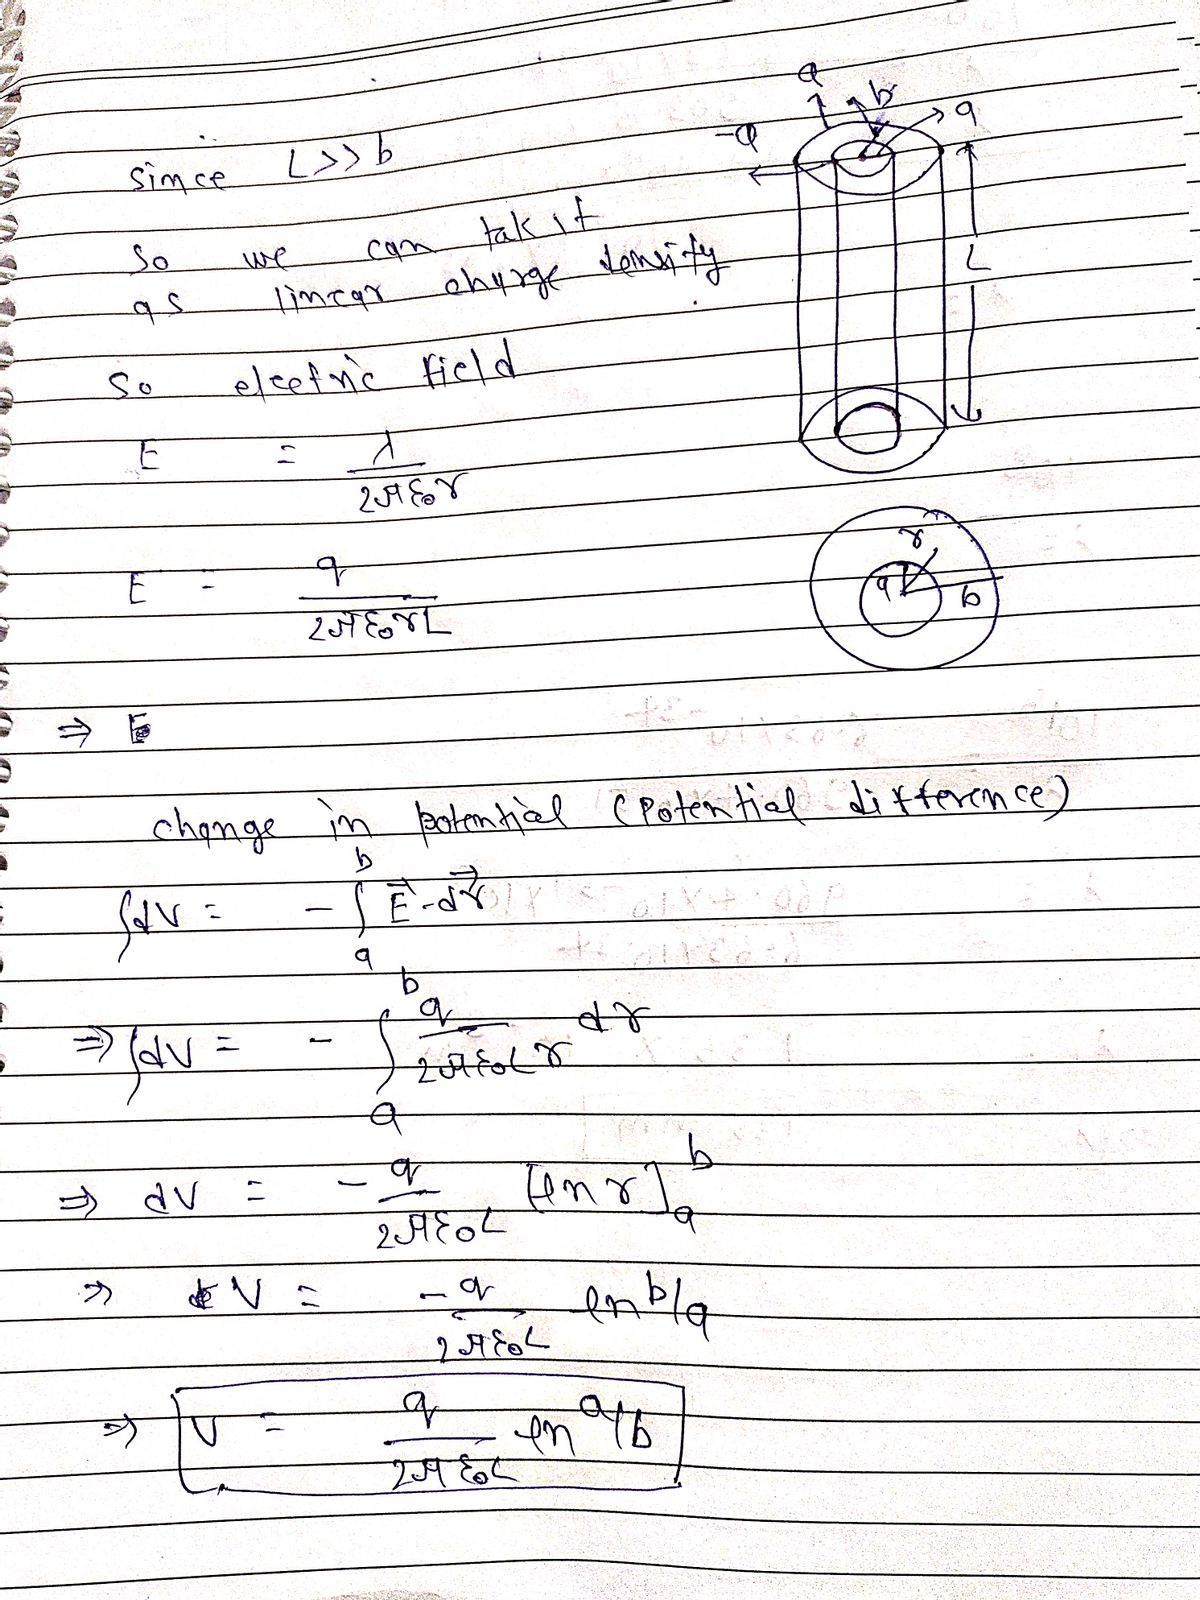 since L>>b
so we can tak it
as linear charge density
so electric field
E = λ/2πε₀r
E = q/2πε₀rL
⇒ E
change in potential (potential difference)
∫dV = -∫ₐᵇ E⃗-dr⃗
⇒ ∫dV = -∫ₐᵇ q/2πε₀Lr dr
⇒ dV = -q/2πε₀L [ln r]ₐᵇ
⇒ V = -q/2πε₀L ln b/a
⇒ V = q/2πε₀L ln a/b
a
b
q
-q
L
r
a
b